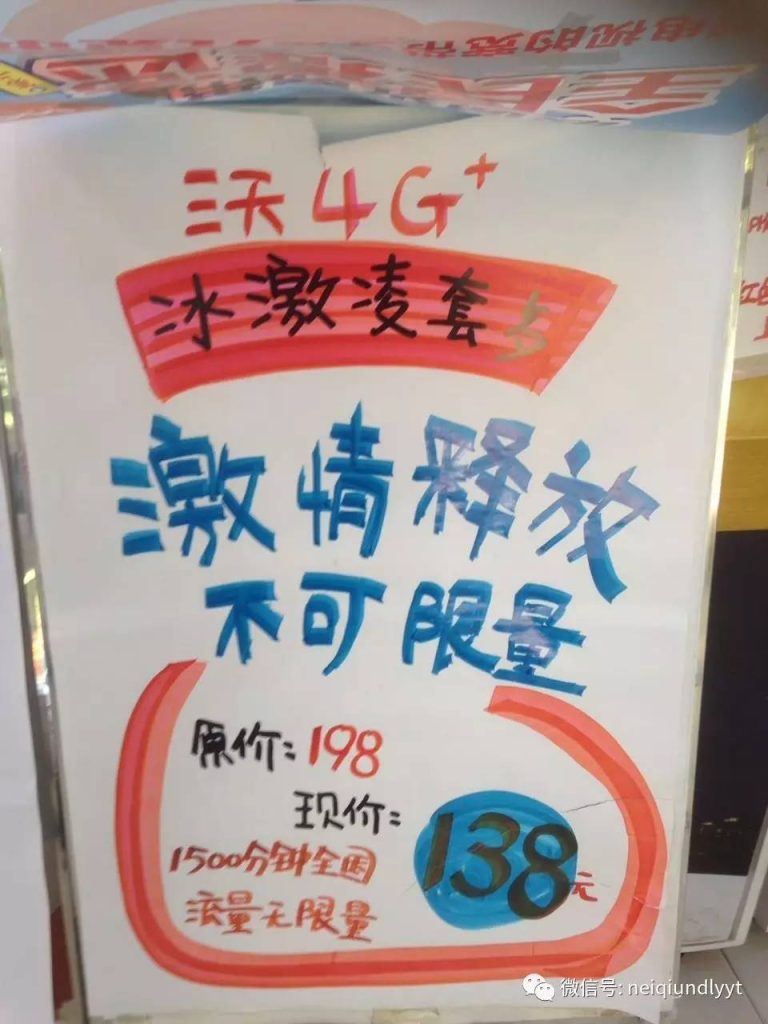 电视的宽带
沃4G+
冰激凌套
激情释放
不可限量
原价:198
现价:
138元
1500分钟全国
流量无限量
微信号: neiqiundlyyt